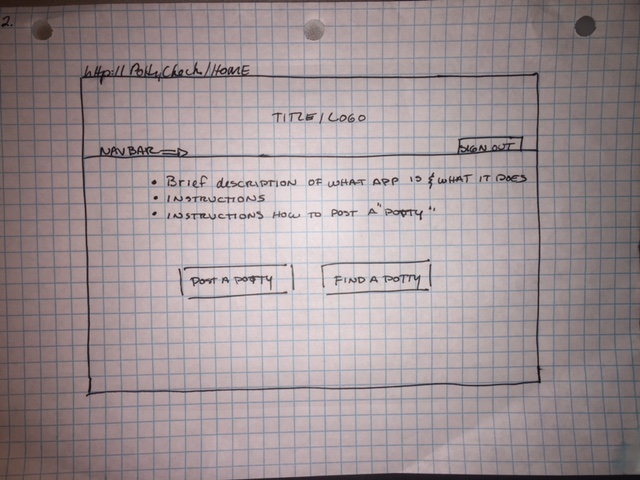 2.
http:// PottyCheck/HOME
TITLE/LOGO
NAVBAR
SIGN OUT
• Brief description of what app is & what it does
• INSTRUCTIONS
• INSTRUCTIONS HOW TO POST A "POTTY".
POST A POTTY
FIND A POTTY